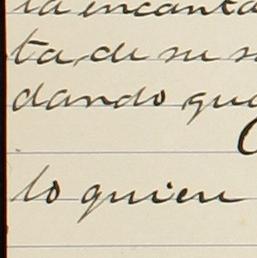 la encanta
ta, de su s
dando que
lo quien